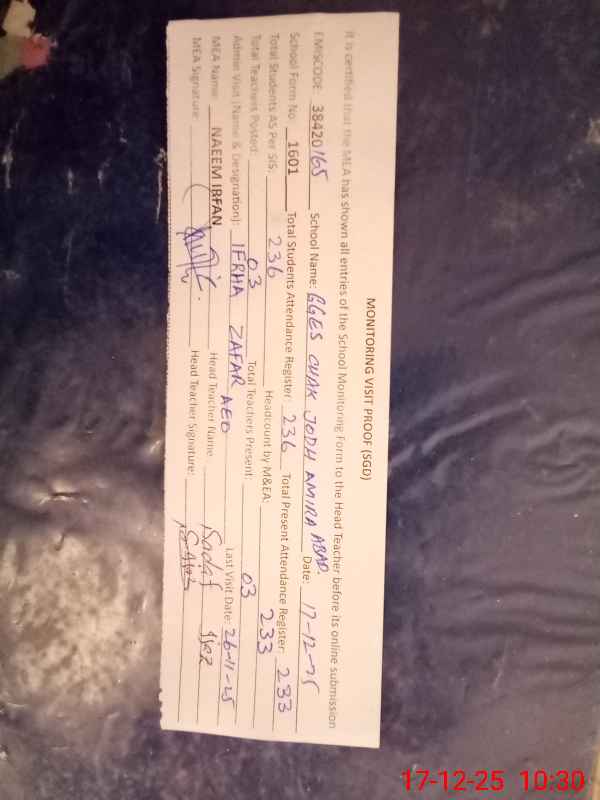 MONITORING VISIT PROOF (SGD)
It is certified that the MEA has shown all entries of the School Monitoring Form to the Head Teacher before its online submission
EMISCODE: 38420165 School Name: GGES CHAK JODH AMIRA ABAD. Date: 17-12-25
School Form No. 1601 Total Students Attendance Register: 236 Total Present Attendance Register: 233
Total Students AS Per SIS: 236 Headcount by M&EA: 233
Total Teachers Posted: 03 Total Teachers Present: 03
Admin Visit (Name & Designation): IFRHA ZAFAR AEO Last Visit Date: 26-11-25
MEA Name: NAEEM IRFAN Head Teacher Name: Sadaf Ijaz
MEA Signature: Head Teacher Signature:
17-12-25 10:30